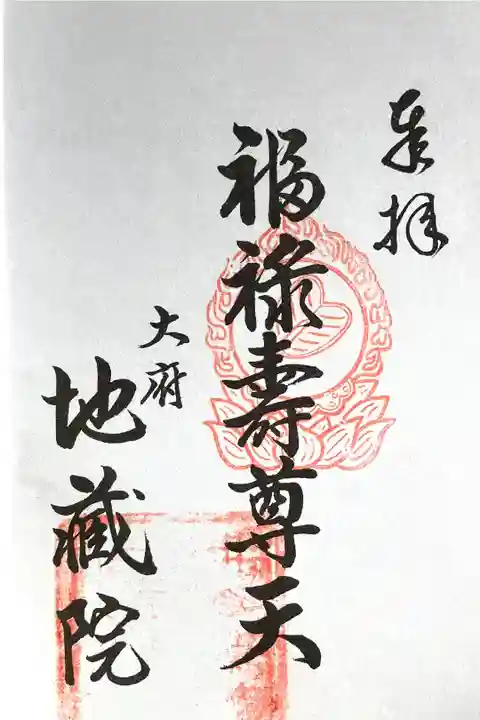 奉拝
福禄壽尊天
大府
地藏院